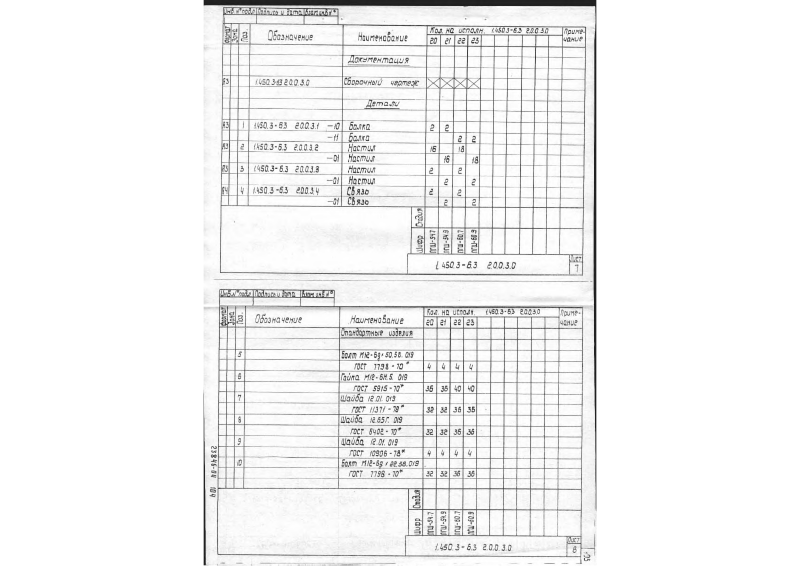 Инв.N°подл. Подпись и дата Взам.инв.N°
Формат Зона Поз. Обозначение Наименование Кол. на исполн. 1.450.3-6.3 2.0.0.3.0 Примечание
20 21 22 23
Документация
1.450.3-6.3 2.0.0.3.0 Сборочный чертеж
Детали
1 1.450.3-6.3 2.0.0.3.1 -10 Балка 2 2
-11 Балка 2 2
2 1.450.3-6.3 2.0.0.3.2 Настил 16 18
-01 Настил 16 18
3 1.450.3-6.3 2.0.0.3.3 Настил 2 2
-01 Настил 2 2
4 1.450.3-6.3 2.0.0.3.4 Связь 2 2
-01 Связь 2 2
Стадия
Шифр ПГШ-54.7 ПГШ-54.9 ПГШ-60.7 ПГШ-60.9
1.450.3-6.3 2.0.0.3.0
Лист
7
Инв.N°подл. Подпись и дата Взам.инв.N°
Формат Зона Поз. Обозначение Наименование Кол. на исполн. 1.450.3-6.3 2.0.0.3.0 Примечание
20 21 22 23
Стандартные изделия
5 Болт М12-6g×50.58.019
ГОСТ 7798-70* 4 4 4 4
6 Гайка М12-6Н.5.019
ГОСТ 5915-70* 36 36 40 40
7 Шайба 12.01.019
ГОСТ 11371-78* 32 32 36 36
8 Шайба 12.65Г.019
ГОСТ 6402-70* 32 32 36 36
9 Шайба 12.01.019
ГОСТ 10906-78* 4 4 4 4
10 Болт М12-6g×22.58.019
ГОСТ 7798-70* 32 32 36 36
Стадия
Шифр ПГШ-54.7 ПГШ-54.9 ПГШ-60.7 ПГШ-60.9
1.450.3-6.3 2.0.0.3.0
Лист
8
104